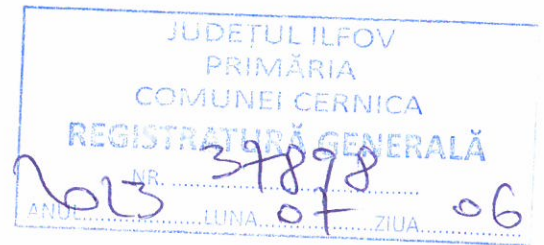 JUDEȚUL ILFOV
PRIMĂRIA
COMUNEI CERNICA
REGISTRATURĂ GENERALĂ
NR. 37898
ANUL 2023 LUNA 07 ZIUA 06